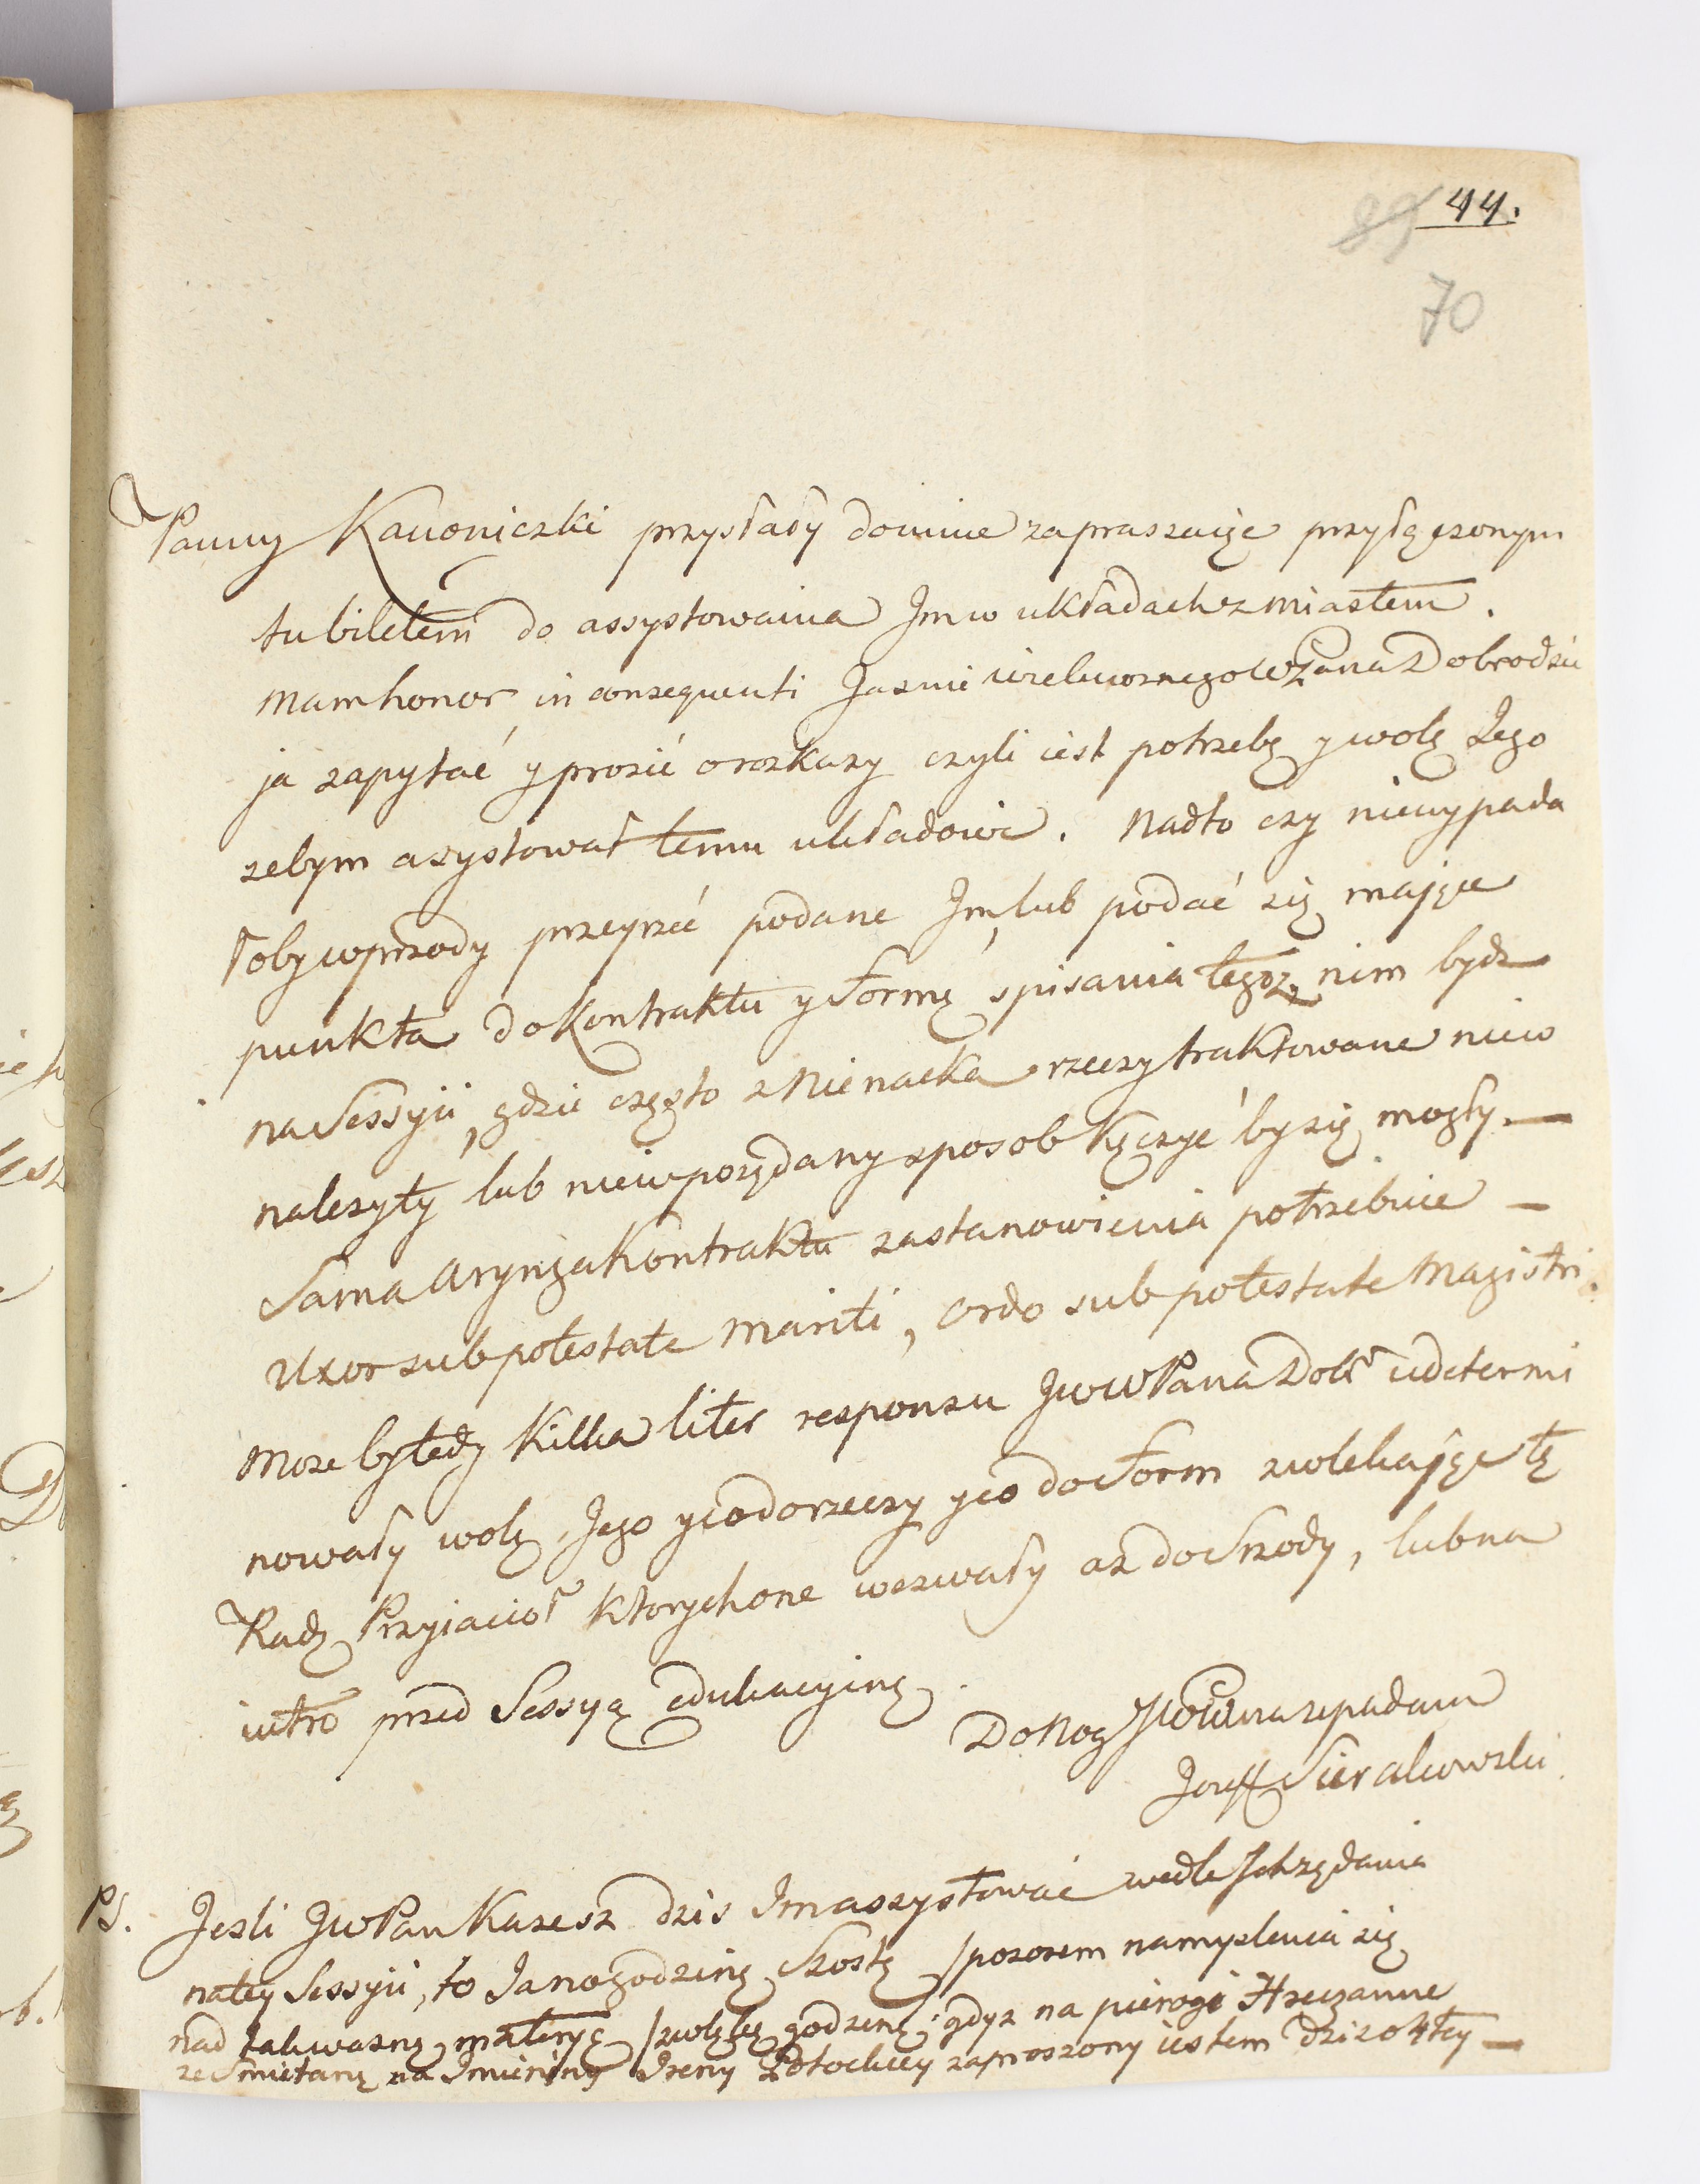 89 44.
70
Panny Kanoniczki przysłały do mnie zapraszaiąc przyłączonym
tu biletem do assystowania Jm w układach z miastem.
Mam honor in consequenti Jasnie wielmoznego WPana Dobrodzie
ja zapytać y prosić o rozkazy czyli iest potrzebą y wolą Jego
zebym asystował temu układowi. Nadto czy niewypada
łoby wprzody przeyrzeć podane Jm, lub podać się maiące
punkta do Kontraktu y formę spisania tegoz, nim będz
na Sessyii, gdzie często z Nienacka rzeczy traktowane niew
nalezyty lub niewporządany sposob kączyć by się mogły. —
Sama Arynga Kontraktu zastanowienia potrzebuie —
Uxor sub potestate Mariti, ordo sub potestate Magistri.
Moze by tedy Kilka liter responsu JWWPana Dobr udetermi
nowały wolą Jego y co do rzeczy y co do form zwlekaiąc tę
Radę Przyiacioł Ktorych one wezwały az do Srzody, lub na
iutro przed Sessyą edukacyiną.
Do Nog JWWPana upadam
Jozeff Sierakowski
PS. Jesli JWPan Kazesz dzis Jm assystować wedle Ich rządania
na tey Sessyii, to Ja na godzinę Szostę /pozorem namyslenia się
nad tak wazną materyą/ zwlekę godzinę; gdyz na pierogi Hreczanne
ze Smietaną na Imieniny Ireny Potockiey zaproszony iestem dzis o 4tey —